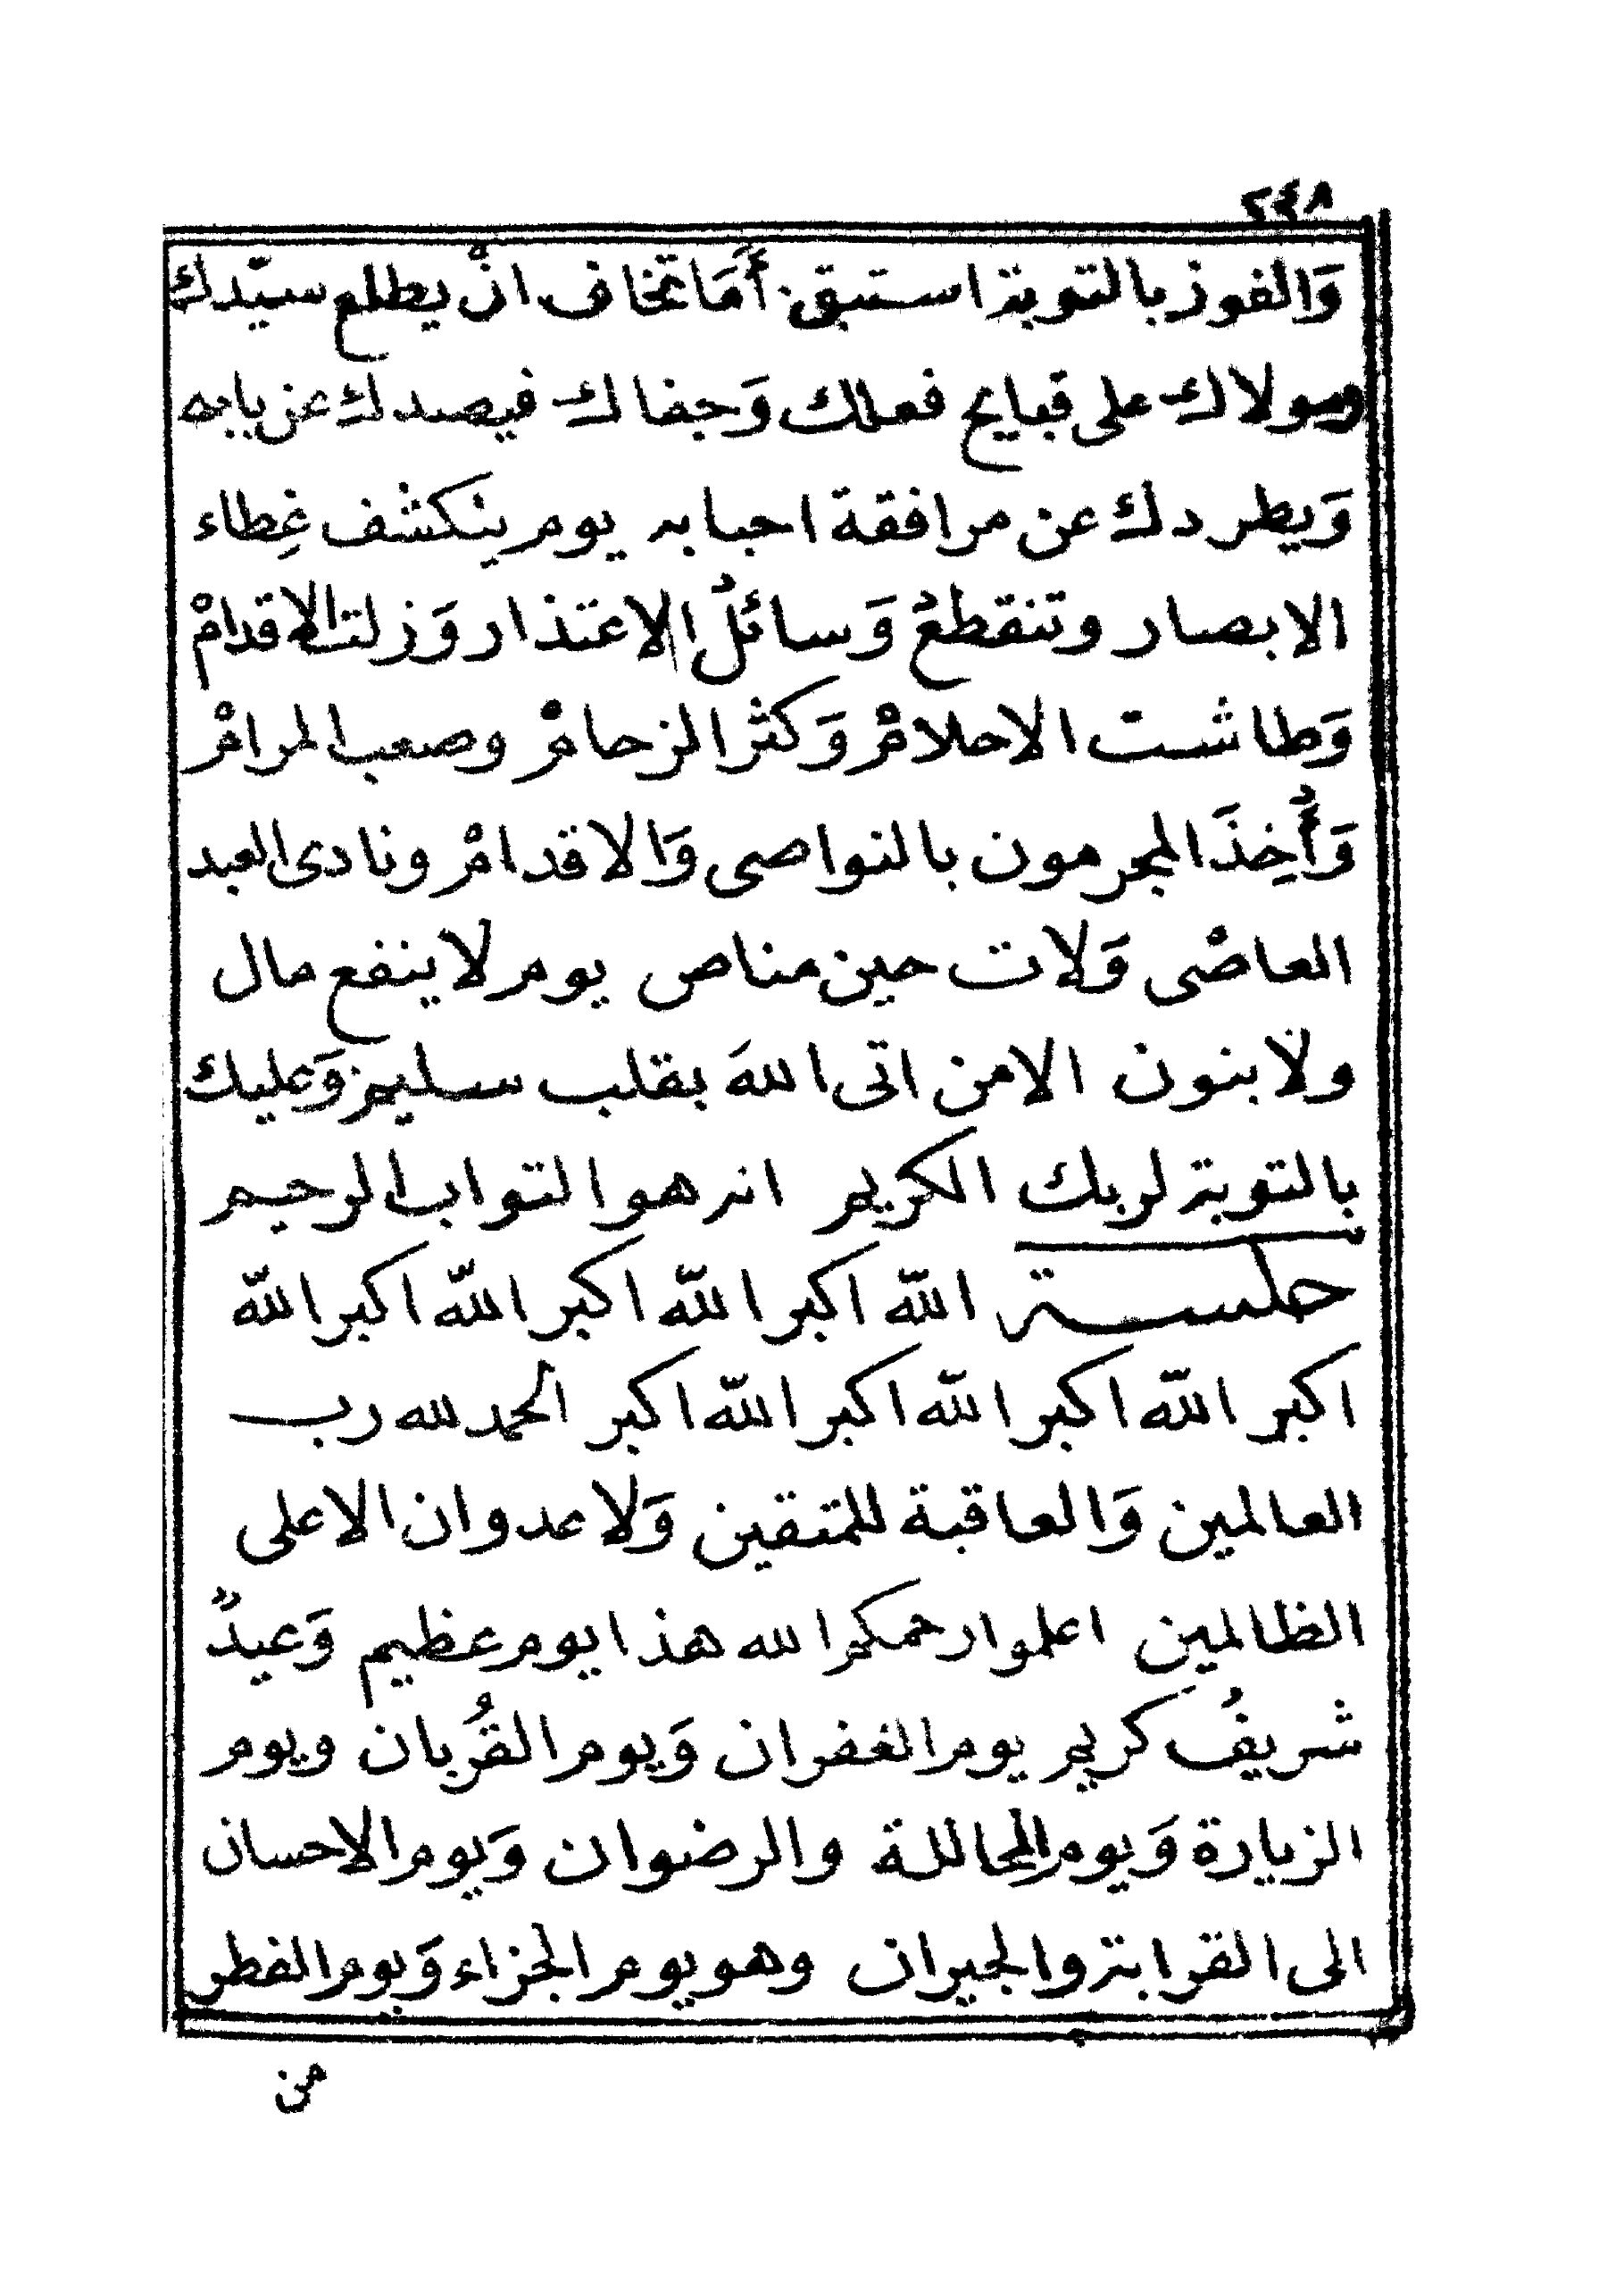 ٢٤٨
وَالفوز بالتوبة استبق. أَمَا تخافى انْ يطلع سيّدك
ومولاك على قبايح فعلك وَجفاك فيصدك عن بابه
وَيطردك عن مرافقة احبابه يوم ينكشف غِطاء
الابصار وتنقطعُ وَسائلُ الاعتذار وَزلت الاقدامْ
وَطاشت الاحلامْ وَكثر الزحامْ وصعب المرامْ
وَأُخِذَ المجرمون بالنواصى وَالاقدامْ ونادى العبد
العاصْى وَلات حين مناص يوم لا ينفع مال
ولا بنون الا من اتى اللهَ بقلب سليم وَعليك
بالتوبة لربك الكريم انه هو التواب الرحيم
جلسة الله اكبر الله اكبر الله اكبر الله
اكبر الله اكبر الله اكبر الله اكبر الحمد لله رب
العالمين وَالعاقبة للمتقين وَلا عدوان الا على
الظالمين اعلموا رحمكم الله هذا يوم عظيم وَعيدٌ
شريفُ كريم يوم الغفران وَيوم القُربان ويوم
الزيارة وَيوم المحاللة والرضوان وَيوم الاحسان
الى القرابة والجيران وهو يوم الجزاء وَيوم الفطر
من